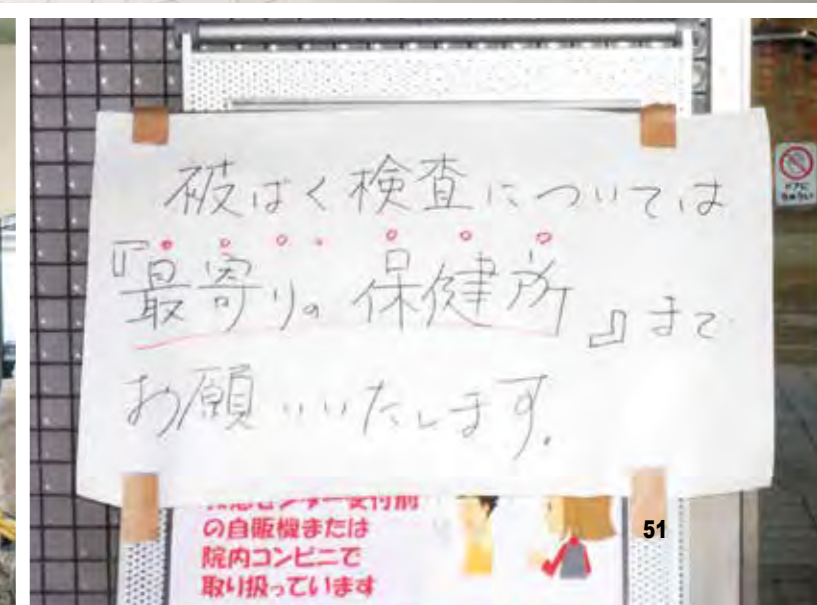 被ばく検査については
『最寄りの保健所』まで
お願いいたします.
の自販機または
院内コンビニで
取り扱っています
51
ドアに
ちゅうい